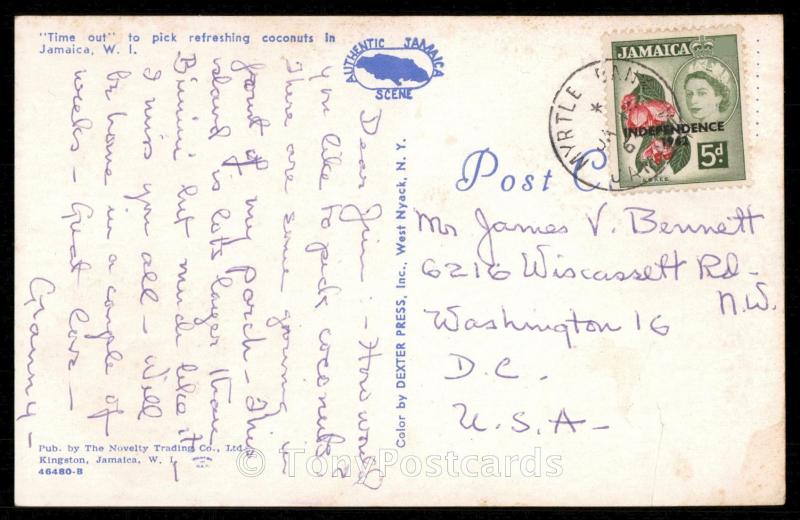 "Time out" to pick refreshing coconuts in
Jamaica, W. I.
AUTHENTIC JAMAICA
SCENE
Dear Jim:- How would
you like to pick coconuts?
There are some growing in
front of my porch - This
island is lots larger than
Bimini but much like it -
I miss you all - Will
be home in a couple of
weeks - Great love -
Granny -
Pub. by The Novelty Trading Co., Ltd.
Kingston, Jamaica, W. I.
46480-B
Color by DEXTER PRESS, Inc., West Nyack, N. Y.
Post C
MYRTLE BAN
JAMAICA
INDEPENDENCE
1962
5d
ACKEE
Mr James V. Bennett
6216 Wiscassett Rd-
N.W.
Washington 16
D.C.
U.S.A-
© TonyPostcards